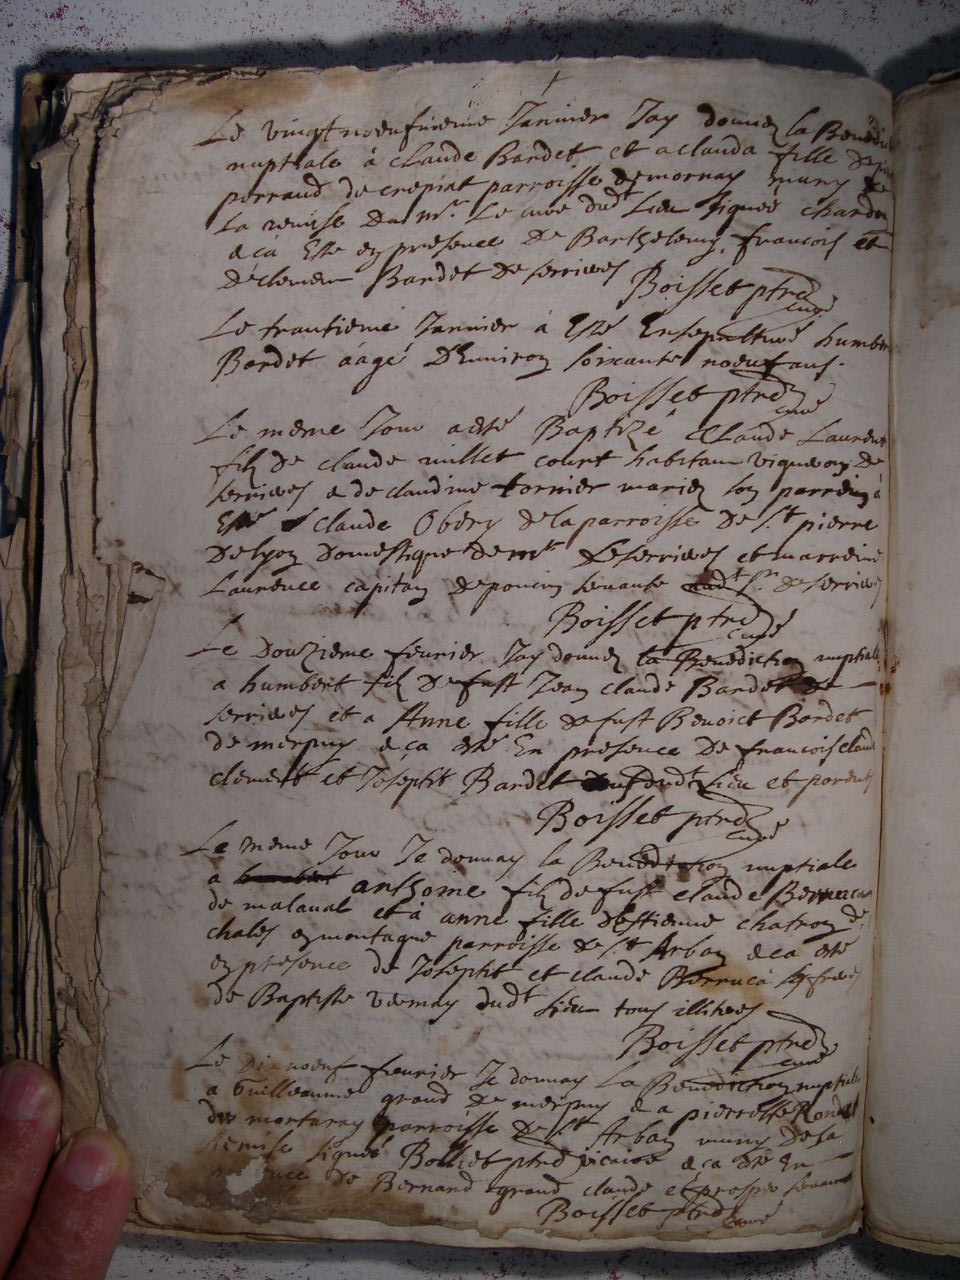 Le vingt noeufvieme Janvier Jay donnez la Benedic
nuptiale à Claude Bardet et a clauda fille de
perraud de crepiat parroisse de mornay muny de
La remise du mr. Le curé dudt Lieu signée chardon
& ça Esté en presence de Barthelemy, francois et
declement Bardet de serrieres
Boisset ptre
curé
Le trantieme Janvier à Esté Ensepulturé humbe
Bardet áagé D'Environ soixante noeuf ans.
Boisset ptre
curé
Le meme Jour a esté Baptizé Claude Laurent
filz de claude millet court habitant vigneron de
serrieres & de claudine tornier mariez son parrein à
Esté claude Obery de la parroisse de St pierre
De lyon Domestique de mr De serrieres et marreine
Laurence capitan de poncin servante dudt Sr. de serrieres
Boisset ptre
curé
Le Douzieme fevrier Jay donnez la Benediction nuptiale
a humbert filz De fust Jean claude Bardet de
serrieres et a Anne fille de fust Benoict Bardet
de merpuy & ça esté En presence De francois claude
clement et Joseph Bardet dudt Lieu et parents
Boisset ptre
curé
Le meme Jour Je donnay la Benediction nuptiale
a anthoine filz de fust claude Berruca
de malaval et à anne fille d'Estienne chatron de
chales en montagne parroisse de St Arban & ca esté
en presence de Joseph et claude Berruca ses freres
de Baptiste vernay dudt Lieu tous illitrés
Boisset ptre
curé
Le Dix noeuf fevrier Je donnay La Benediction nuptiale
a Guilleaume grand de merpuy & a pierrette Rondet
de mortaray parroisse de St Arban muny De la
Remise signée Bolliet ptre vicaire & ca esté En
de Bernard grand claude et prosper
Boisset ptre
curé